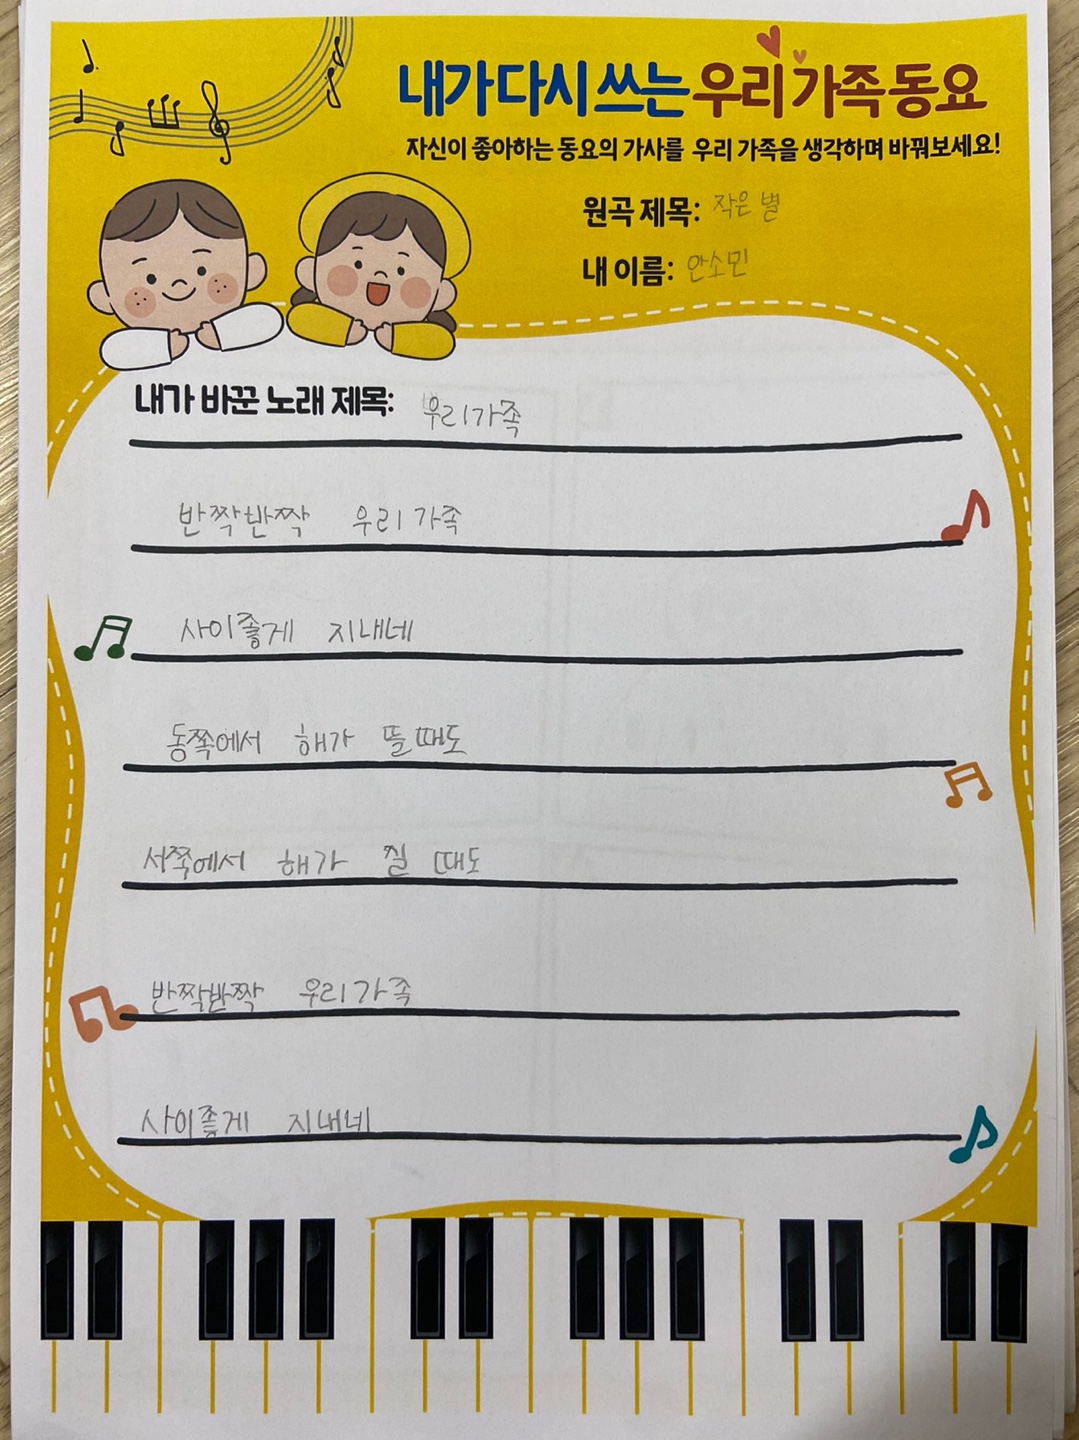 내가 다시 쓰는 우리 가족 동요
자신이 좋아하는 동요의 가사를 우리 가족을 생각하며 바꿔보세요!
원곡 제목: 작은 별
내 이름: 안소민
내가 바꾼 노래 제목: 우리가족
반짝반짝 우리가족
사이좋게 지내네
동쪽에서 해가 뜰때도
서쪽에서 해가 질 때도
반짝반짝 우리가족
사이좋게 지내네